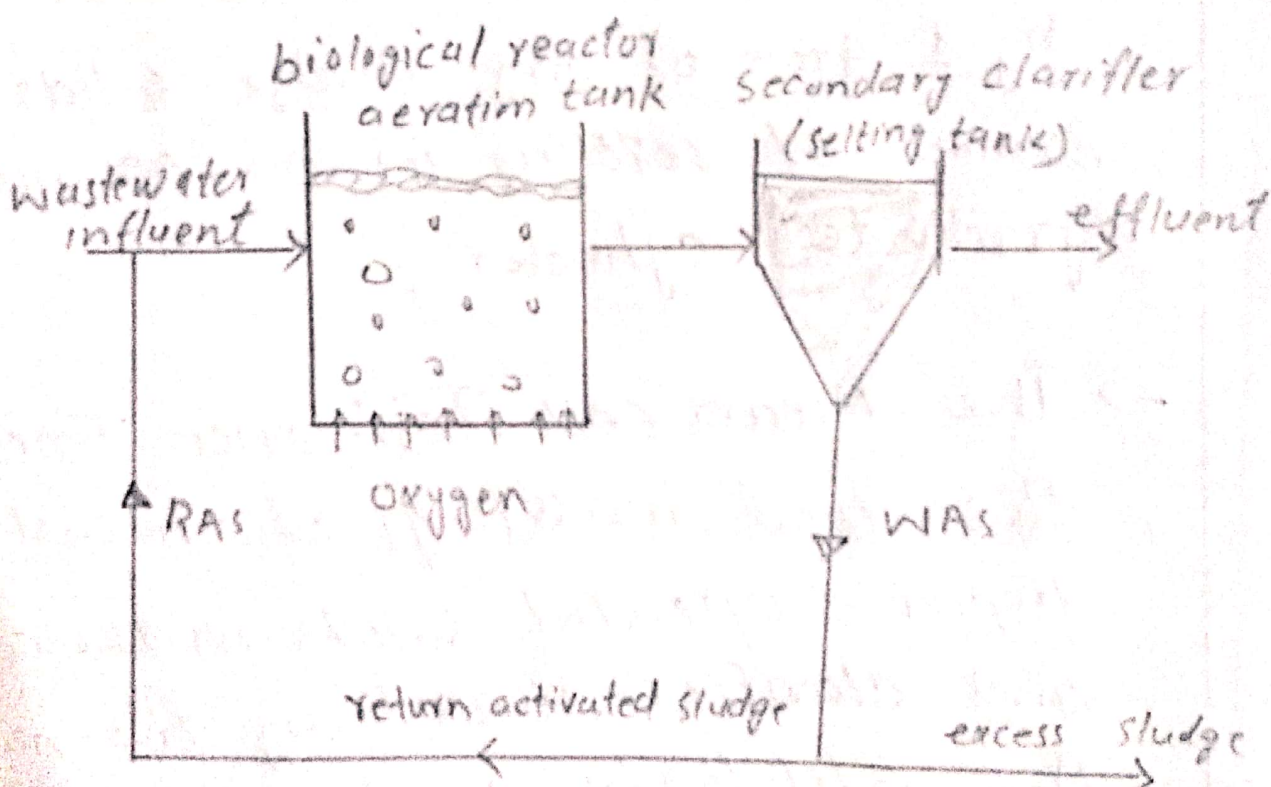 biological reactor
aeratim tank
secondary clarifler
(selting tank)
wastewater
influent
effluent
oxygen
RAS
WAS
return activated sludge
excess sludge